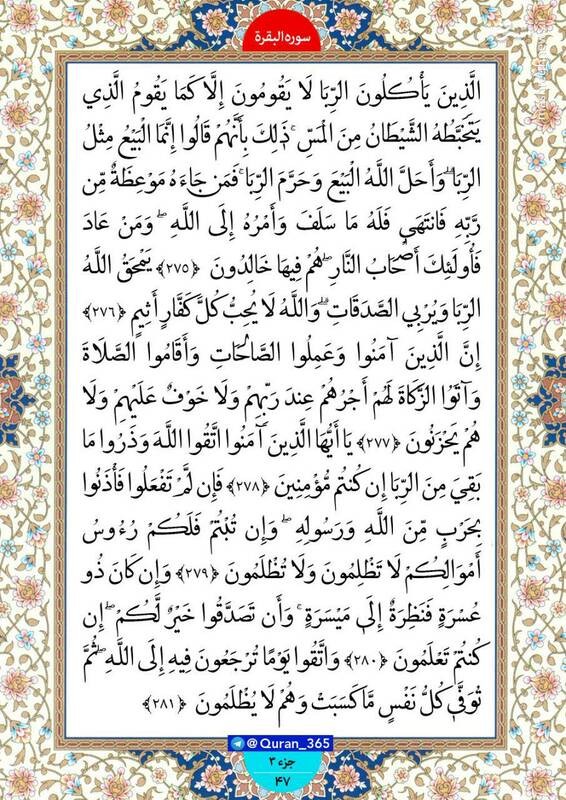 سوره البقرة
الَّذِينَ يَأْكُلُونَ الرِّبَا لَا يَقُومُونَ إِلَّا كَمَا يَقُومُ الَّذِي
يَتَخَبَّطُهُ الشَّيْطَانُ مِنَ الْمَسِّ ۚ ذَٰلِكَ بِأَنَّهُمْ قَالُوا إِنَّمَا الْبَيْعُ مِثْلُ
الرِّبَا ۗ وَأَحَلَّ اللَّهُ الْبَيْعَ وَحَرَّمَ الرِّبَا ۚ فَمَن جَاءَهُ مَوْعِظَةٌ مِّن
رَّبِّهِ فَانتَهَىٰ فَلَهُ مَا سَلَفَ وَأَمْرُهُ إِلَى اللَّهِ ۖ وَمَنْ عَادَ
فَأُولَٰئِكَ أَصْحَابُ النَّارِ ۖ هُمْ فِيهَا خَالِدُونَ ﴿٢٧٥﴾ يَمْحَقُ اللَّهُ
الرِّبَا وَيُرْبِي الصَّدَقَاتِ ۗ وَاللَّهُ لَا يُحِبُّ كُلَّ كَفَّارٍ أَثِيمٍ ﴿٢٧٦﴾
إِنَّ الَّذِينَ آمَنُوا وَعَمِلُوا الصَّالِحَاتِ وَأَقَامُوا الصَّلَاةَ
وَآتَوُا الزَّكَاةَ لَهُمْ أَجْرُهُمْ عِندَ رَبِّهِمْ وَلَا خَوْفٌ عَلَيْهِمْ وَلَا
هُمْ يَحْزَنُونَ ﴿٢٧٧﴾ يَا أَيُّهَا الَّذِينَ آمَنُوا اتَّقُوا اللَّهَ وَذَرُوا مَا
بَقِيَ مِنَ الرِّبَا إِن كُنتُم مُّؤْمِنِينَ ﴿٢٧٨﴾ فَإِن لَّمْ تَفْعَلُوا فَأْذَنُوا
بِحَرْبٍ مِّنَ اللَّهِ وَرَسُولِهِ ۖ وَإِن تُبْتُمْ فَلَكُمْ رُءُوسُ
أَمْوَالِكُمْ لَا تَظْلِمُونَ وَلَا تُظْلَمُونَ ﴿٢٧٩﴾ وَإِن كَانَ ذُو
عُسْرَةٍ فَنَظِرَةٌ إِلَىٰ مَيْسَرَةٍ ۚ وَأَن تَصَدَّقُوا خَيْرٌ لَّكُمْ ۖ إِن
كُنتُمْ تَعْلَمُونَ ﴿٢٨٠﴾ وَاتَّقُوا يَوْمًا تُرْجَعُونَ فِيهِ إِلَى اللَّهِ ۖ ثُمَّ
تُوَفَّىٰ كُلُّ نَفْسٍ مَّا كَسَبَتْ وَهُمْ لَا يُظْلَمُونَ ﴿٢٨١﴾
@Quran_365
جزء ۳
۴۷